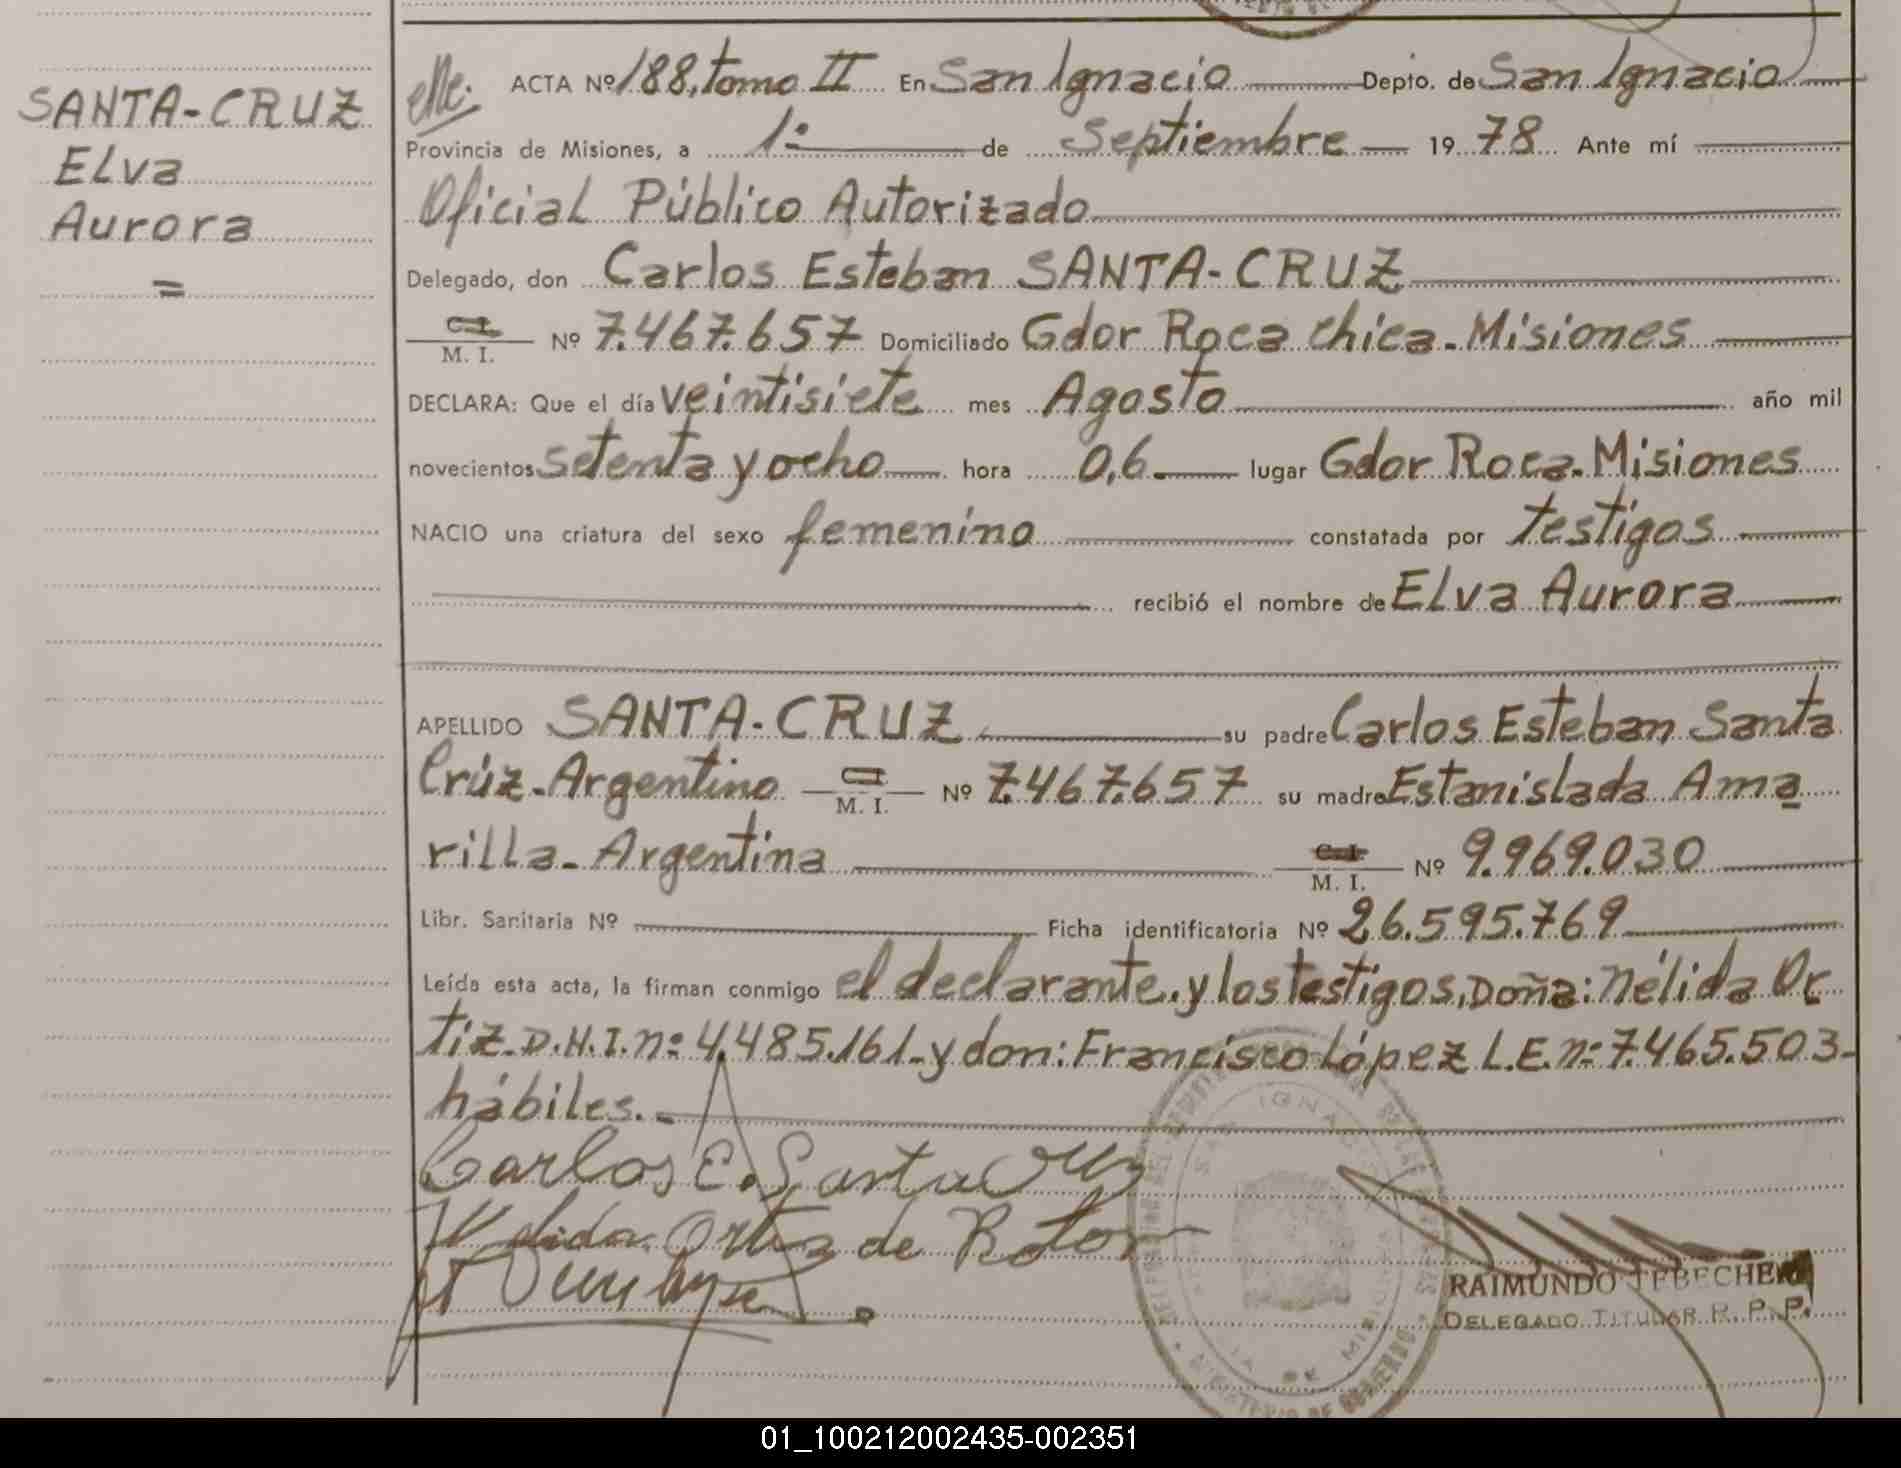 SANTA-CRUZ
Elva
Aurora
=
ACTA Nº 188, tomo II En San Ignacio Depto. de San Ignacio
Provincia de Misiones, a 1º de Septiembre 1978 Ante mí
Oficial Público Autorizado
Delegado, don Carlos Esteban SANTA-CRUZ
C.I.
M. I. Nº 7.467.657 Domiciliado Gdor Roca chica-Misiones
DECLARA: Que el día veintisiete mes Agosto año mil
novecientos setenta y ocho hora 0,6 lugar Gdor Roca-Misiones
NACIO una criatura del sexo femenino constatada por testigos
recibió el nombre de Elva Aurora
APELLIDO SANTA-CRUZ su padre Carlos Esteban Santa
Crúz-Argentino C.I. M. I. Nº 7.467.657 su madre Estanislada Ama
rilla-Argentina C.I. M. I. Nº 9.969.030
Libr. Sanitaria Nº Ficha identificatoria Nº 26.595.769
Leída esta acta, la firman conmigo el declarante y los testigos, Doña: Nélida Or
tiz-D.N.I. nº 4.485.161-y don: Francisco López L.E. nº 7.465.503-
hábiles.-
Carlos E. Santa Cruz
Nelida Ortiz de
SAN IGNACIO
MISIONES
MINISTERIO DE GOBIERNO
RAIMUNDO TEBECHERI
DELEGADO TITULAR R. P. P.
01_100212002435-002351